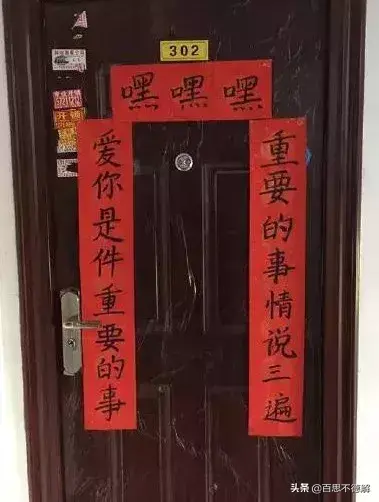 302
嘿嘿嘿
爱你是件重要的事
重要的事情说三遍
开锁
头条 @百思不德解